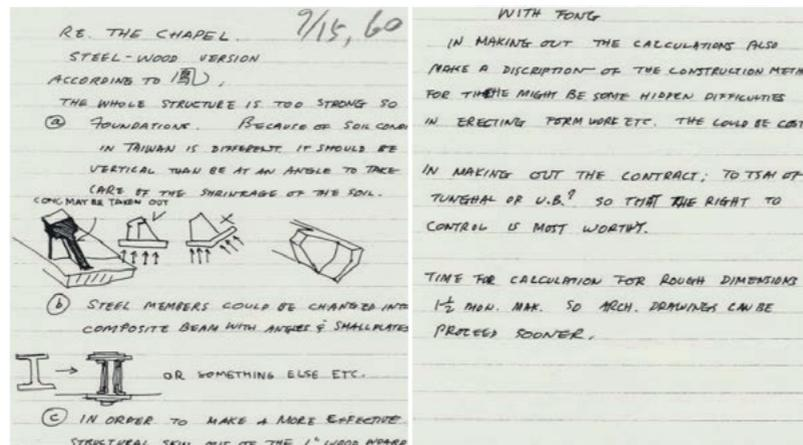 RE. THE CHAPEL.
9/15, 60
STEEL-WOOD VERSION
ACCORDING TO 鳳,
THE WHOLE STRUCTURE IS TOO STRONG SO
ⓐ FOUNDATIONS. BECAUSE OF SOIL CONDI
IN TAIWAN IS DIFFERENT IT SHOULD BE
VERTICAL THAN BE AT AN ANGLE TO TAKE
CARE OF THE SHRINKAGE OF THE SOIL.
CONC MAY BE TAKEN OUT
ⓑ STEEL MEMBERS COULD BE CHANGED INTO
COMPOSITE BEAM WITH ANGLES & SMALL PLATES
OR SOMETHING ELSE ETC.
ⓒ IN ORDER TO MAKE A MORE EFFECTIVE
STRUCTURAL SKIN OUT OF THE 1" WOOD BOARD
WITH FONG
IN MAKING OUT THE CALCULATIONS ALSO
MAKE A DISCRIPTION OF THE CONSTRUCTION METH
FOR THE MIGHT BE SOME HIDDEN DIFFICULTIES
IN ERECTING FORM WORK ETC. THE COULD BE COST
IN MAKING OUT THE CONTRACT; TO TSAI OF
TUNGHAI OR U.B.? SO THAT THE RIGHT TO
CONTROL IS MOST WORTHY.
TIME FOR CALCULATION FOR ROUGH DIMENSIONS
1½ MON. MAX. SO ARCH. DRAWINGS CAN BE
PROCEED SOONER.